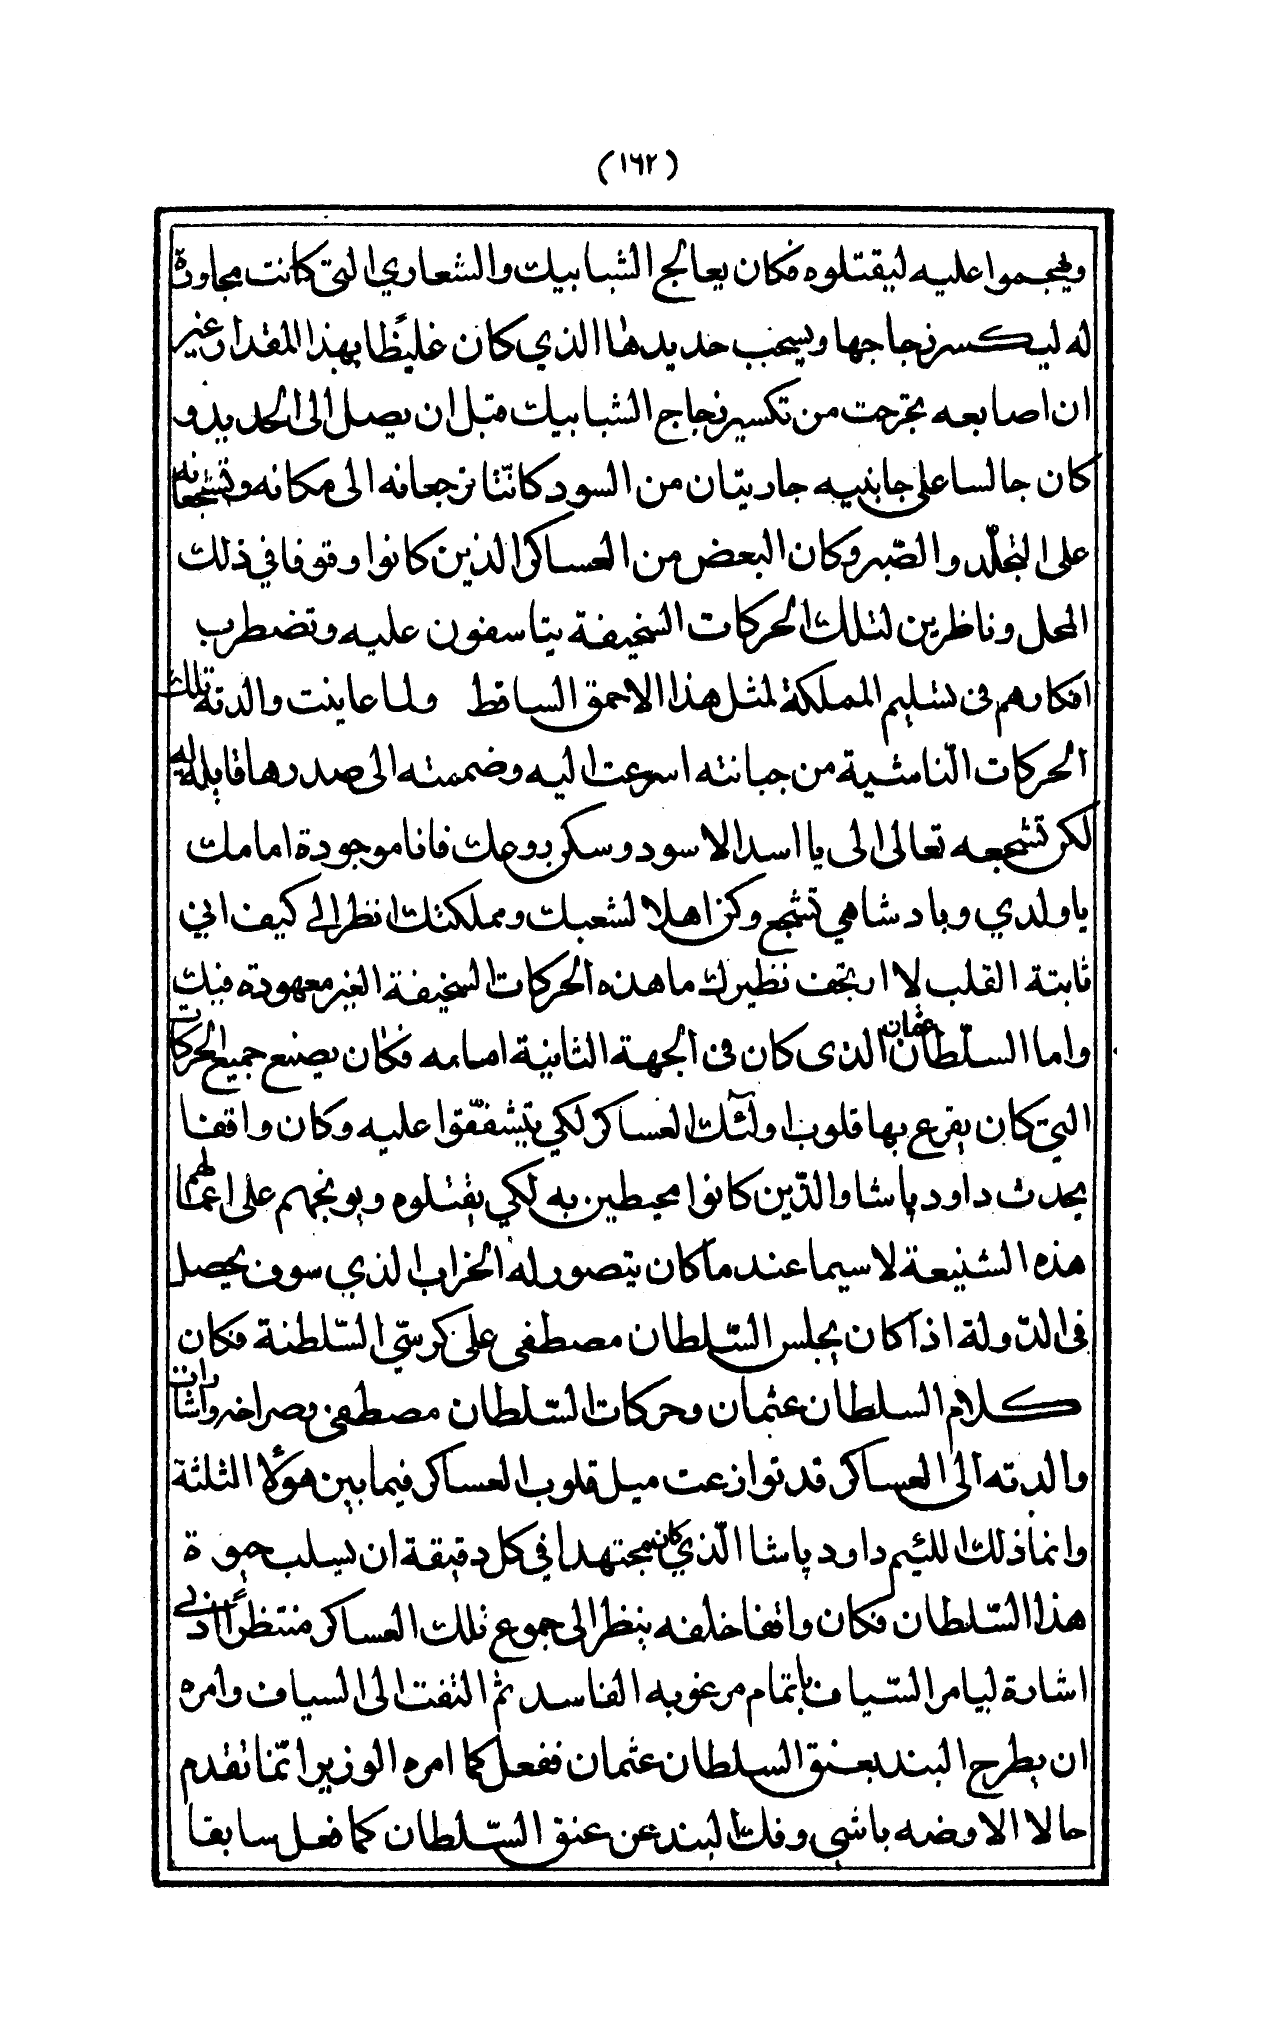 (١٦٢)
ويهجموا عليه ليقتلوه فكان يعالج الشبابيك والشعاري التي كانت مجاورة
له ليكسر زجاجها ويسحب حديدها الذي كان غليظًا بهذا المقدار وغير
ان اصابعه تجرحت من تكسير زجاج الشبابيك قبل ان يصل الى الحديد و
كان جالسا على جانبيه جاريتان من السود كانتا ترجعانه الى مكانه وتشجعانه
على التجلّد والصّبر وكان البعض من العساكر الذين كانوا وقوفا في ذلك
المحل وناظرين لتلك الحركات السخيفة يتاسفون عليه وتضطرب
افكارهم في تسليم المملكة لمثل هذا الاحمق الساقط ولما عاينت والدته تلك
الحركات النّاشية من جبانته اسرعت اليه وضمته الى صدرها قايلة له
لكن تشجعه تعالى الى يا اسد الاسود وسكن روعك فانا موجودة امامك
يا ولدي وبادشاهي تشجع وكن اهلا لشعبك ومملكتك انظر الي كيف اني
ثابتة القلب لا ارتجف نظيرك ما هذه الحركات السخيفة الغير معهودة فيك
واما السلّطان عثمان الذى كان فى الجهة الثانية امامه فكان يصنع جميع الحركات
التي كان يقرع بها قلوب اولئك العساكر لكي يتشفّقوا عليه وكان واقفا
يحدث داود پاشا والذّين كانوا محيطين به لكي يقتلوه ويوبخهم على اعمالهم
هذه الشنيعة لا سيما عندما كان يتصور له الخراب الذي سوف يحصل
فى الدّولة اذا كان يجلس السّلطان مصطفى على كرسّي السّلطنة فكان
كلام السلطان عثمان وحركات السّلطان مصطفى وصراخه واشارات
والدته الى العساكر قد توازعت ميل قلوب العساكر فيما بين هؤلا الثلثة
وانما ذلك اللئيم داود پاشا الذّي كان مجتهدا في كل دقيقة ان يسلب حيوة
هذا السّلطان فكان واقفا خلفه ينظر الى جموع تلك العساكر منتظرًا ادنى
اشارة ليامر السّياف باتمام مرغوبه الفاسد ثم التفت الى السياف وامره
ان يطرح البند بعنق السلطان عثمان ففعل كما امره الوزير انّما تقدم
حالا الاوضه باشي وفك البند عن عنق السّلطان كما فعل سابقا